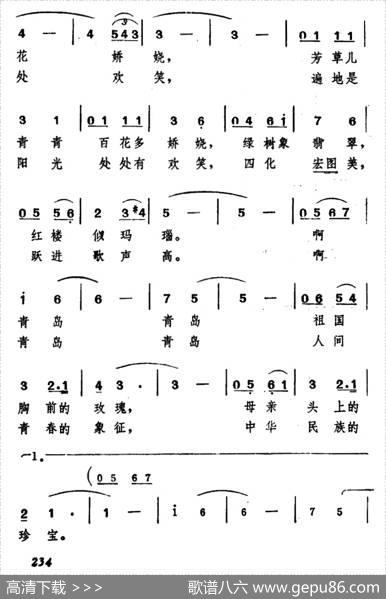 4 — | 4 543 | 3 — | 3 — | 01 11 |
花 娇 娆， 芳草儿
处 欢 笑， 遍地是
3 1 | 01 11 | 3 6 | 04 6i | 7 6 |
青青 百花多 娇娆， 绿树象 翡翠，
阳光 处处有 欢笑， 四化 宏图美，
05 56 | 2 3#4 | 5 — | 5 — | 05 67 |
红楼 似玛 瑙。 啊
跃进 歌声 高。 啊
i 6 | 6 — | 7 5 | 5 — | 06 54 |
青岛 青岛 祖国
青岛 青岛 人间
3 2·1 | 4 3· | 3 — | 05 61 | 3 2·1 |
胸前的 玫瑰， 母亲 头上的
青春的 象征， 中华 民族的
1.
(05 67
2 1· | 1 — | i 6 | 6 — | 7 5 |
珍宝。
234
高清下载 >>>
歌谱八六 www.gepu86.com